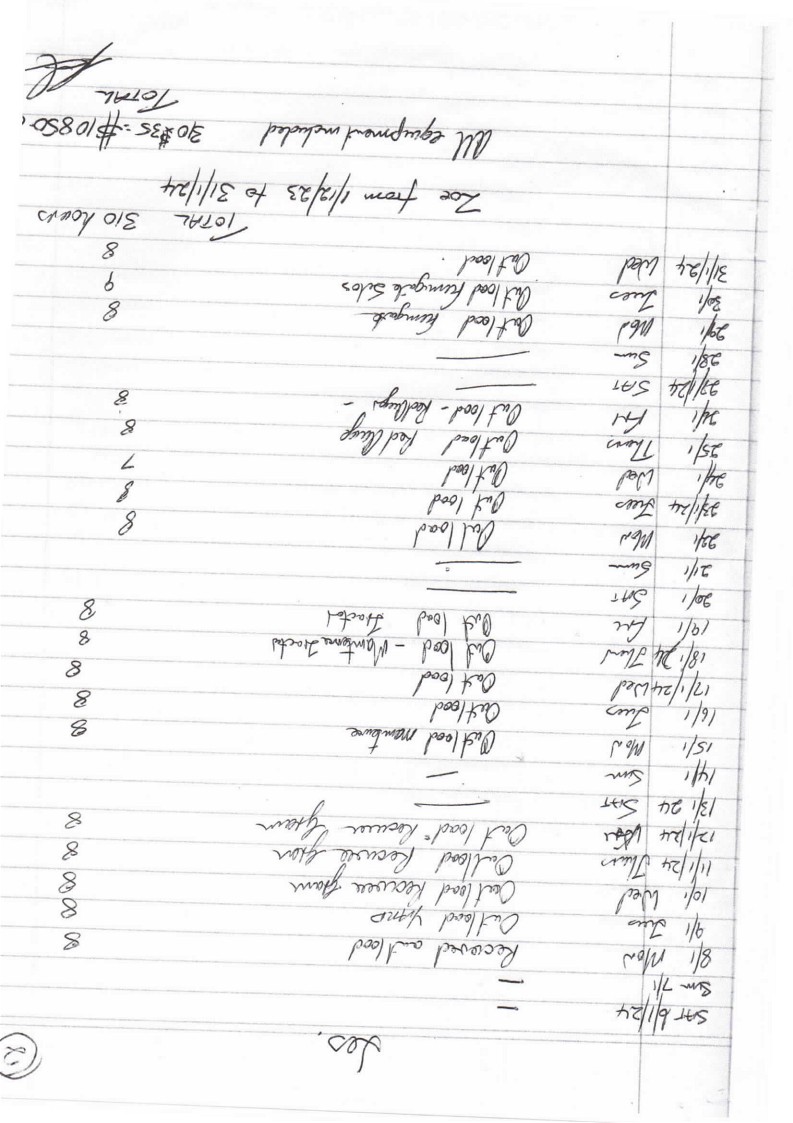 Les.
2
SAT 6/1/24 —
Sun 7/1 —
8/1 Mon Recieved outload 8
9/1 Tues Outload YARD 8
10/1 Wed Outload Recivee Grain 8
11/1/24 Thurs Outload Recivee Grain 8
12/1/24 Outload - Recivee Grain 8
13/1 24 SAT —
14/1 Sun —
15/1 Mon Outload maintence 8
16/1 Tues Outload 8
17/1/24 Wed Out load 8
18/1 24 Thurs Out load - Maintence Tractor 8
19/1 Fri Out load Tractor 8
20/1 SAT —
21/1 Sun —
22/1 Mon Out load 8
23/1/24 Tues Out load 8
24/1 Wed Outload 7
25/1 Thurs Outload Red Auge 8
26/1 Fri Outload - Red Auger - 8
27/1/24 SAT —
28/1 Sun —
29/1 Mon Outload Fumigate 8
30/1 Tues Outload Fumigate Silos 9
31/1/24 Wed Outload . 8
TOTAL 310 hours
Zoe from 1/12/23 to 31/1/24
All equipment included 310 $35 = $10850.
TOTAL